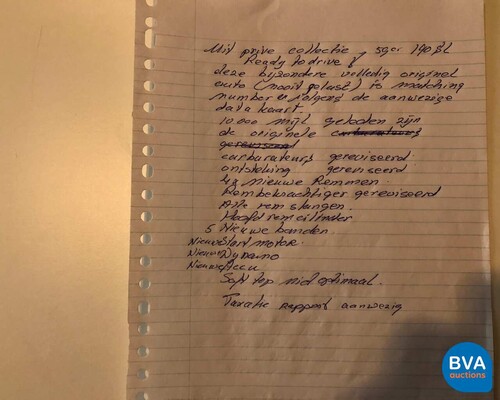 Uit prive collectie, sger 190 SL
Ready to drive!
deze byzondere volledig original
auto (nooit gelast) is matching
number volgens de aanwezige
data kaart.
10.000 mijl geleden zijn
de originele carburateurs
gereviseerd
carburateurs gereviseerd
ontsteking gereviseerd
4x nieuwe Remmen.
Rembekrachtiger gereviseerd
Alle remslangen.
Hoofdremcilinder
5 Nieuwe banden.
Nieuwe start motor.
Nieuwe Dynamo
Nieuwe Accu
Soft top niet optimaal.
Taxatie rapport aanwezig
BVA
auctions